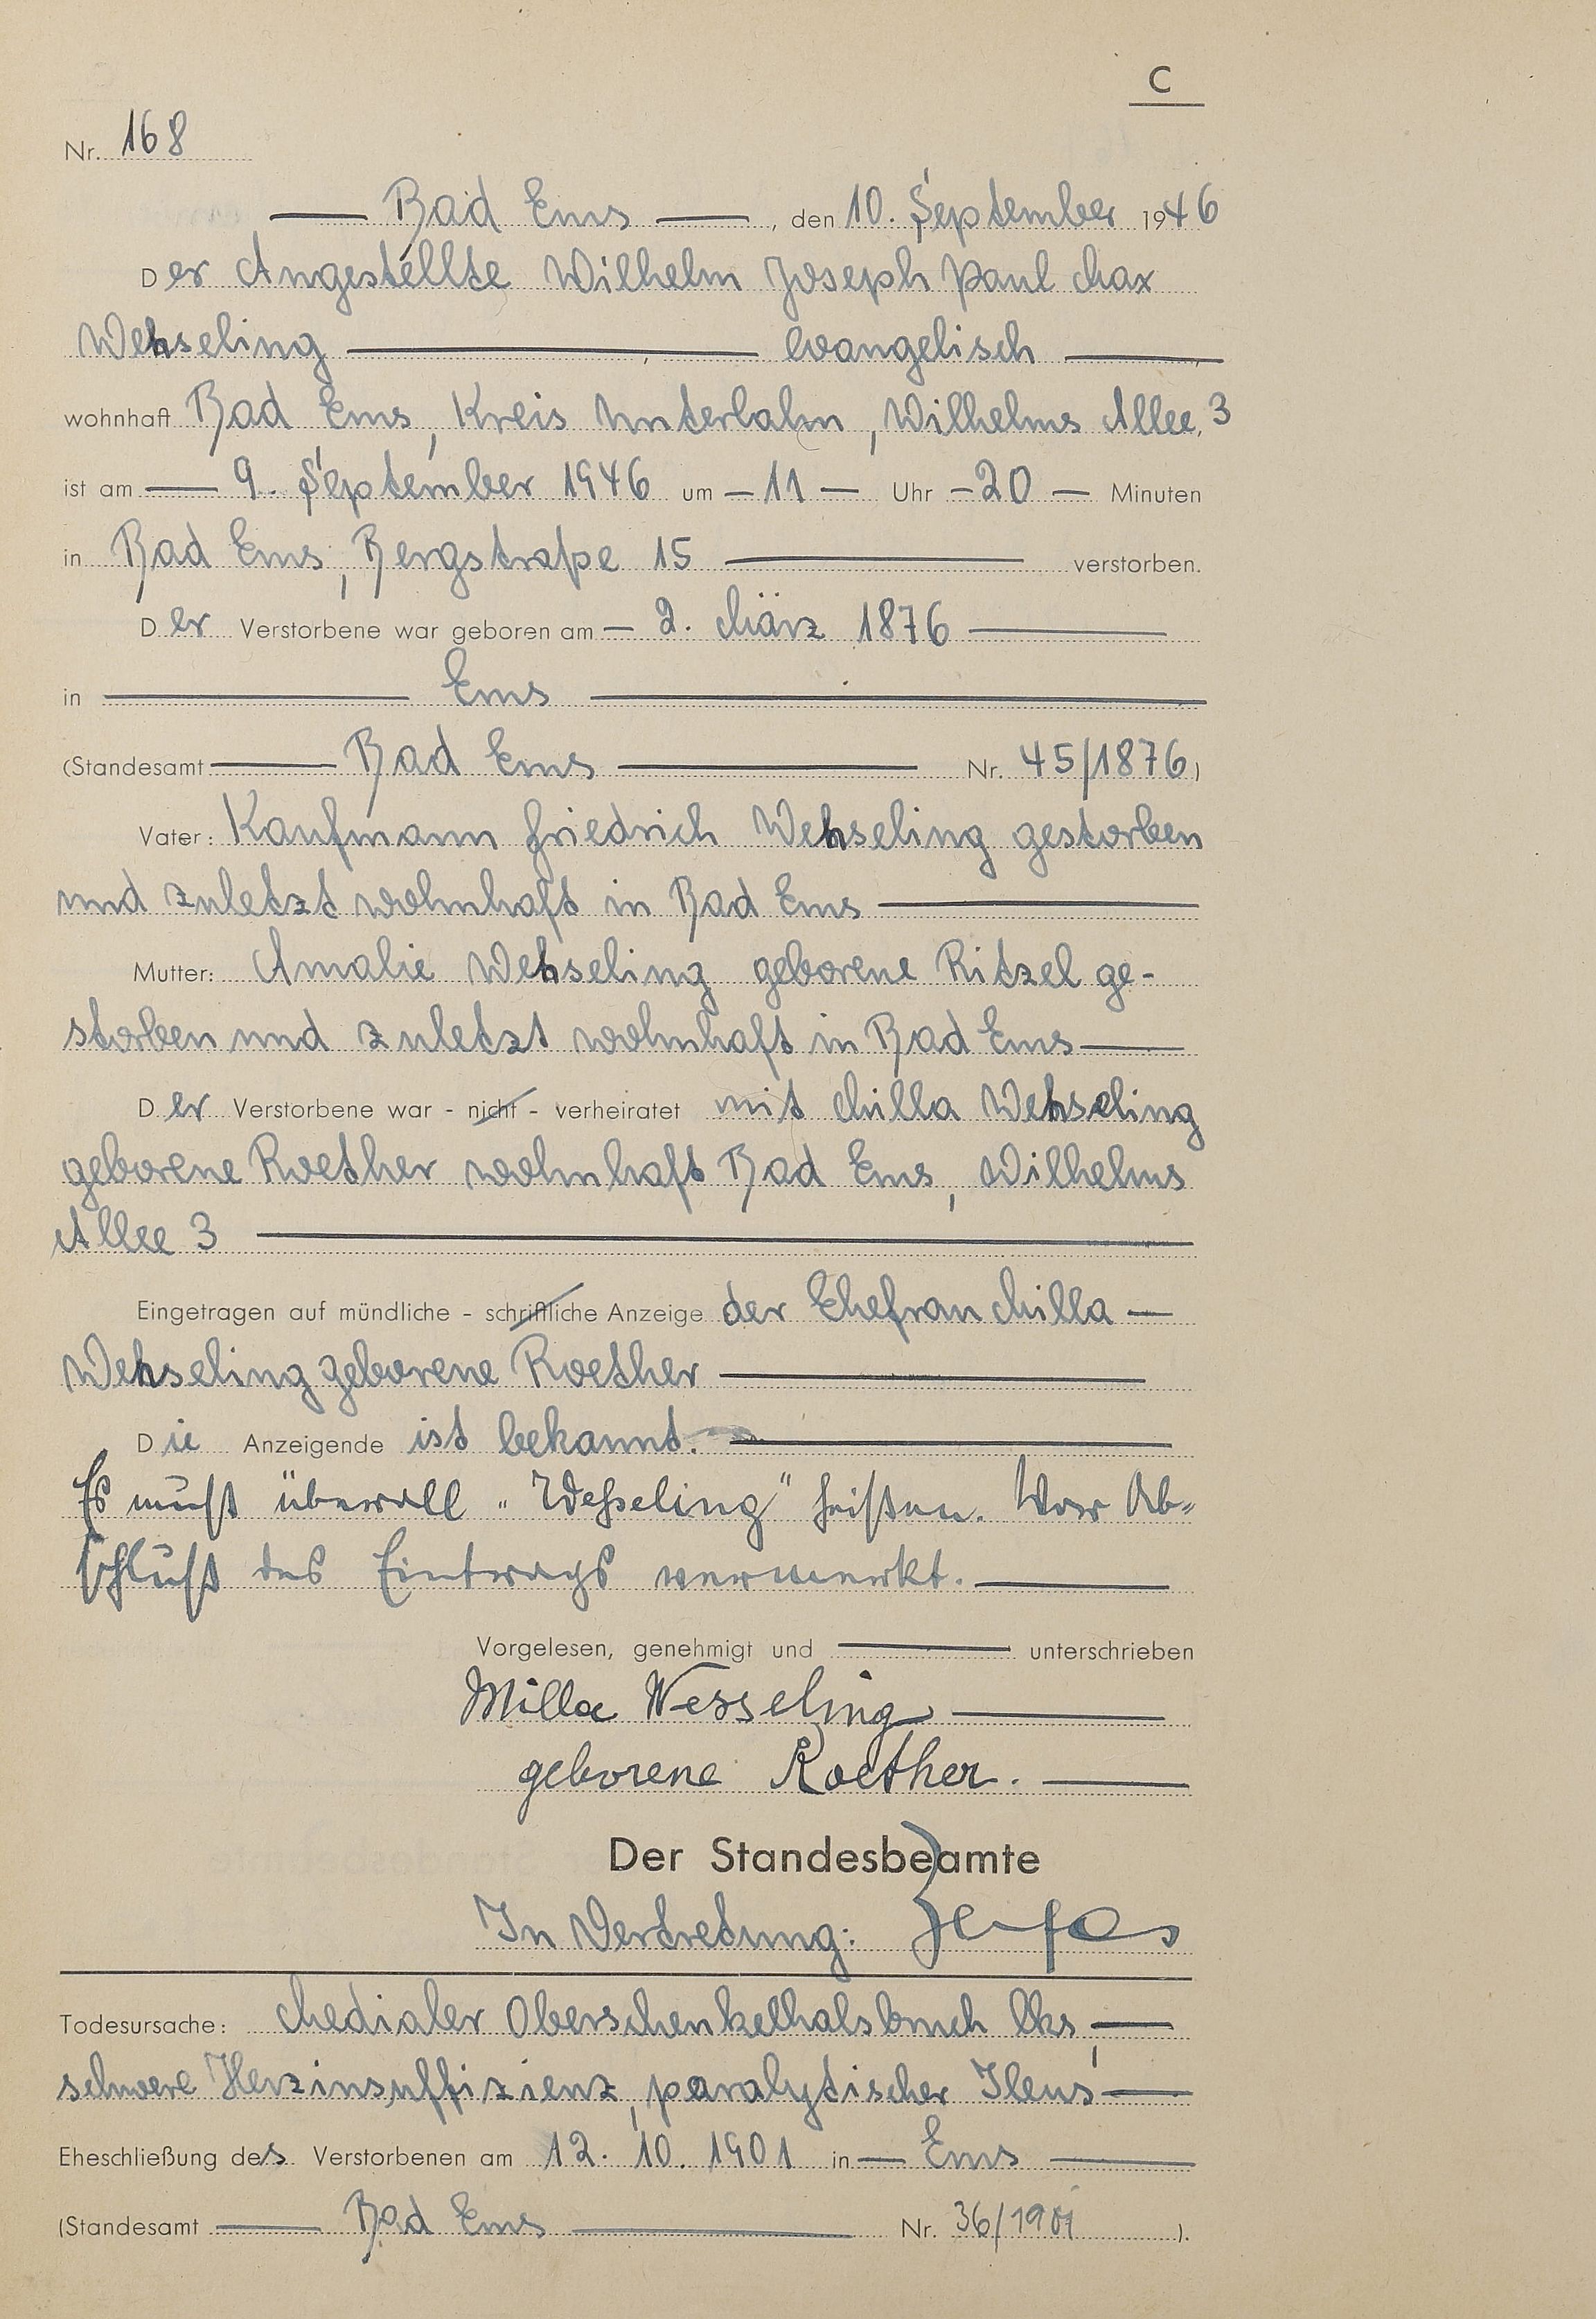 C
Nr. 168
Bad Ems, den 10. September 1946
Der Angestellte Wilhelm Joseph Paul Max
Wehseling evangelisch
wohnhaft Bad Ems, Kreis Unterlahn, Wilhelms Allee, 3
ist am 9. September 1946 um - 11 - Uhr - 20 - Minuten
in Bad Ems, Bergstraße 15 verstorben.
Der Verstorbene war geboren am - 2. März 1876
in Ems
(Standesamt Bad Ems Nr. 45/1876)
Vater: Kaufmann Friedrich Wehseling gestorben
und zuletzt wohnhaft in Bad Ems
Mutter: Amalie Wehseling geborene Ritzel ge-
storben und zuletzt wohnhaft in Bad Ems
Der Verstorbene war - nicht - verheiratet mit Milla Wehseling
geborene Roether wohnhaft Bad Ems, Wilhelms
Allee 3
Eingetragen auf mündliche - schriftliche Anzeige der Ehefrau Milla
Wehseling geborene Roether
Die Anzeigende ist bekannt.
Es muß überall „Weßeling" heißen. Vor Ab-
schluß des Eintrags vermerkt.
Vorgelesen, genehmigt und unterschrieben
Milla Wesseling
geborene Roether.
Der Standesbeamte
In Vertretung:
Todesursache: Medialer Oberschenkelhalsbruch lks,
schwere Herzinsuffizienz, paralytischer Ileus
Eheschließung des Verstorbenen am 12. 10. 1901 in Ems
(Standesamt Bad Ems Nr. 36/1901).